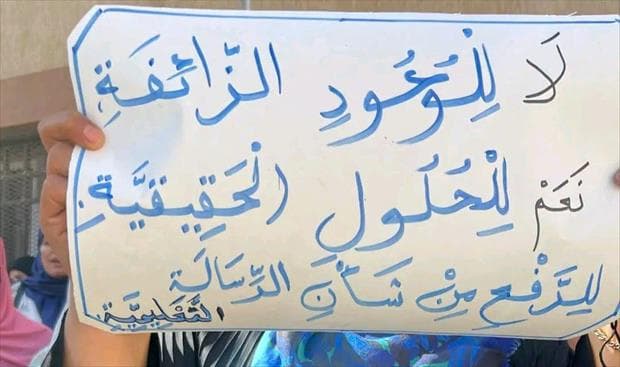 لَا لِلْوُعُودِ الزَّائِفَةِ
نَعَمْ لِلْحُلُولِ الْحَقِيقِيَّةِ
لِلرَّفْعِ مِنْ شَأْنِ الرِّسَالَةِ
التَّعْلِيمِيَّةِ